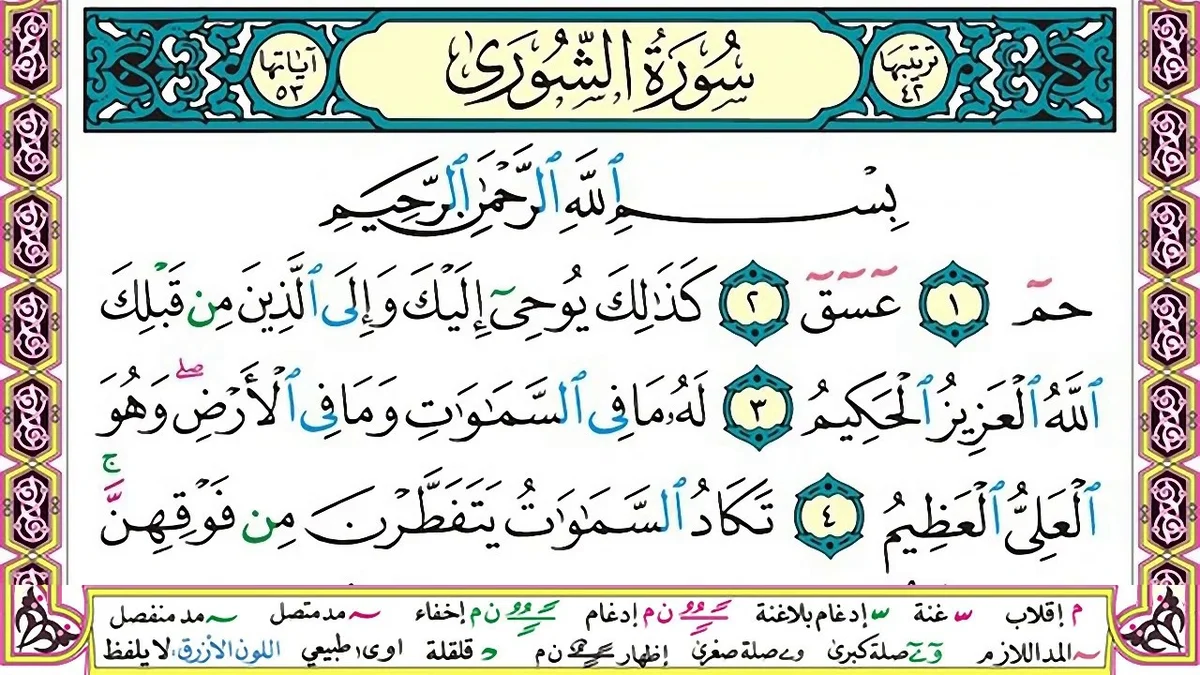 ترتيبها ٤٢ سُورَةُ الشُّورَىٰ آياتها ٥٣
بِسْمِ ٱللَّهِ ٱلرَّحْمَٰنِ ٱلرَّحِيمِ
حمٓ ١ عٓسٓقٓ ٢ كَذَٰلِكَ يُوحِىٓ إِلَيْكَ وَإِلَى ٱلَّذِينَ مِن قَبْلِكَ
ٱللَّهُ ٱلْعَزِيزُ ٱلْحَكِيمُ ٣ لَهُۥ مَا فِى ٱلسَّمَٰوَٰتِ وَمَا فِى ٱلْأَرْضِۖ وَهُوَ
ٱلْعَلِىُّ ٱلْعَظِيمُ ٤ تَكَادُ ٱلسَّمَٰوَٰتُ يَتَفَطَّرْنَ مِن فَوْقِهِنَّۚ
م إقلاب غنة إدغام بلاغنة ن م إدغام ن م إخفاء مد متصل مد منفصل
المد اللازم صلة كبرى صلة صغرى إظهار ن م قلقلة اوى، طبيعي اللون الأزرق: لا يلفظ